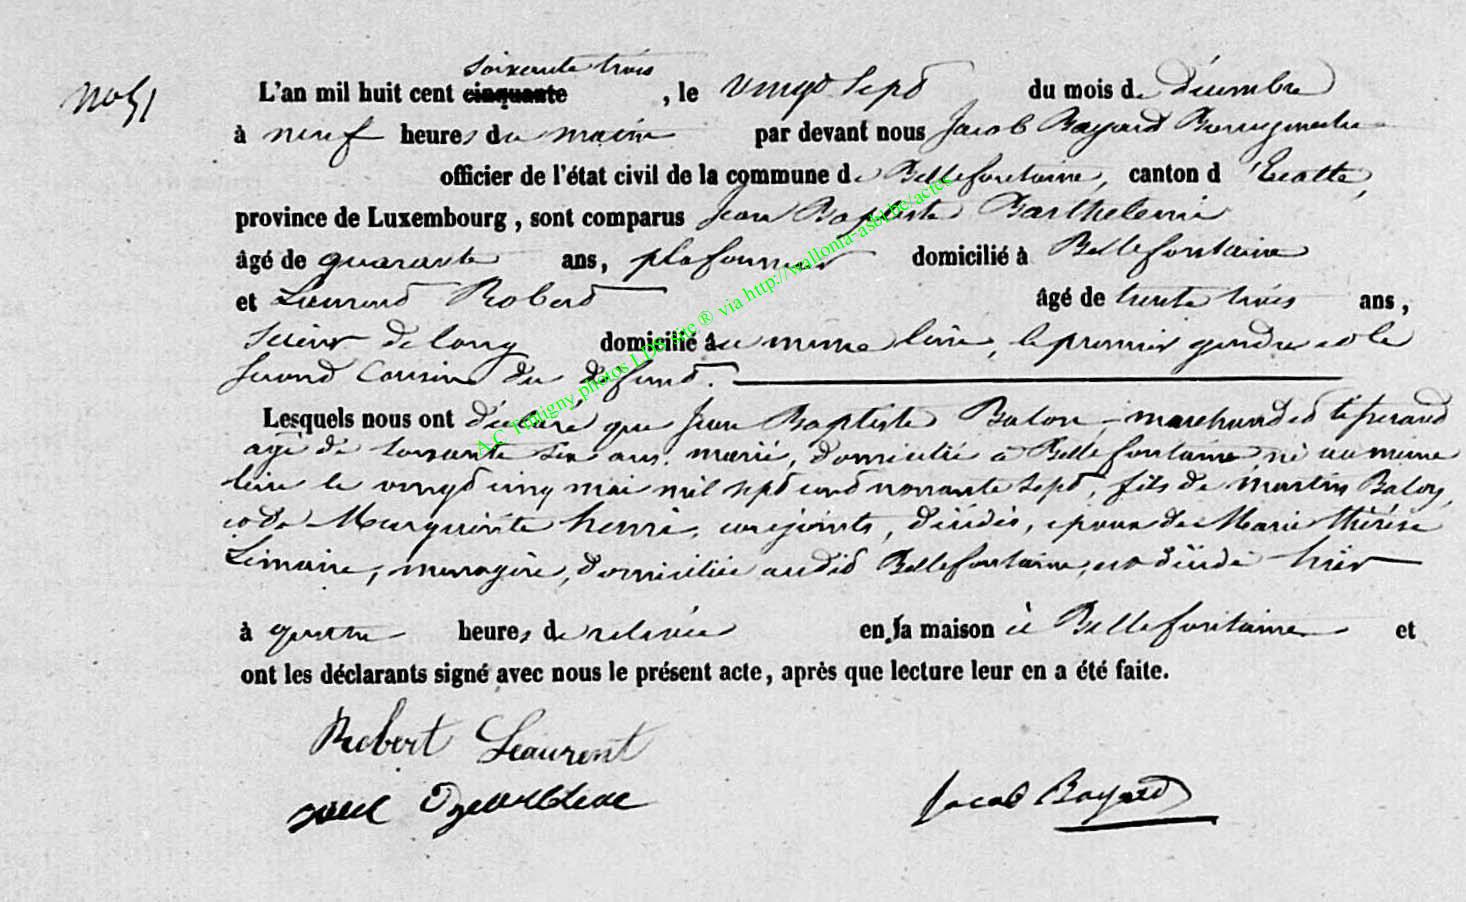 soixante trois
N° 51
L'an mil huit cent cinquante, le vingt sept du mois de décembre
à neuf heures du matin par devant nous Jacob Bayard Bourgmestre
officier de l'état civil de la commune de Bellefontaine, canton d'Etalle,
province de Luxembourg, sont comparus Jean Baptiste Barthelemi
âgé de quarante ans, plafonneur domicilié à Bellefontaine
et Laurent Robert âgé de trente trois ans,
scieur de long domicilié au même lieu, le premier gendre et le
second cousin du défunt.
Lesquels nous ont déclaré que Jean Baptiste Balon, marchand
âgé de soixante six ans, marié, domicilié à Bellefontaine, né au même
lieu le vingt cinq mai mil sept cent nonante sept, fils de Martin Balon,
et de Marguerite henri, conjoints, décédés, époux de Marie thérèse
Limaire, menagère, domiciliée audit Bellefontaine, est décédé hier
à quatre heures de relevée en sa maison à Bellefontaine et
ont les déclarants signé avec nous le présent acte, après que lecture leur en a été faite.
Robert Leaurent
Jacob Bayard
A.C Tintigny photos LDS site ® via http://wallonia-asbl.be/actes